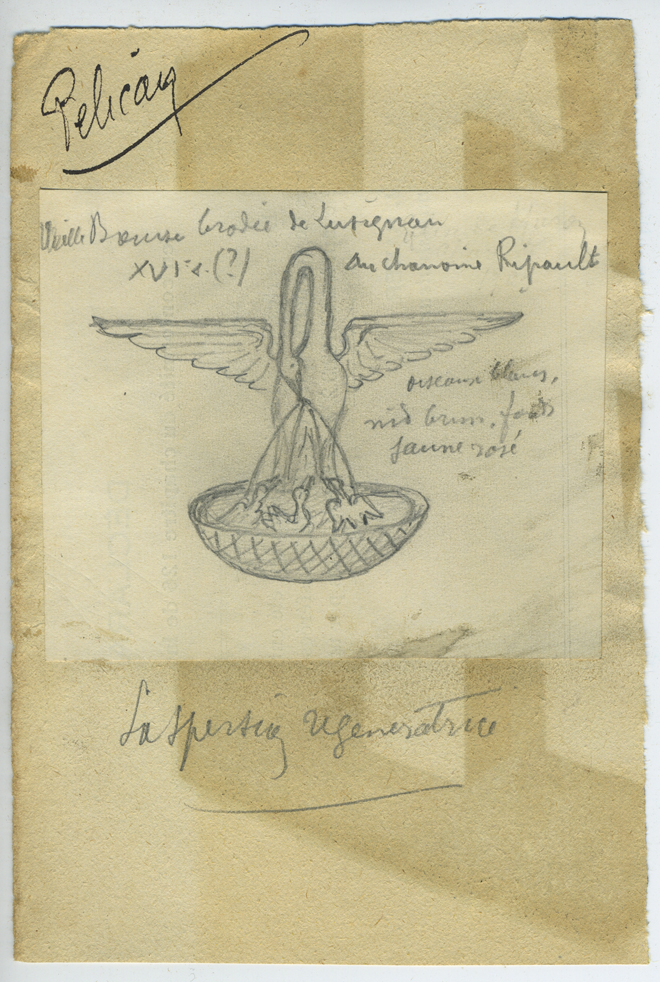 Pelican
Vieille Bourse brodée de Lusignan
XVIe s. (?)
au chanoine Ripault
oiseaux blancs,
nid brun, fond
jaune rosé
L'aspersion régénératrice